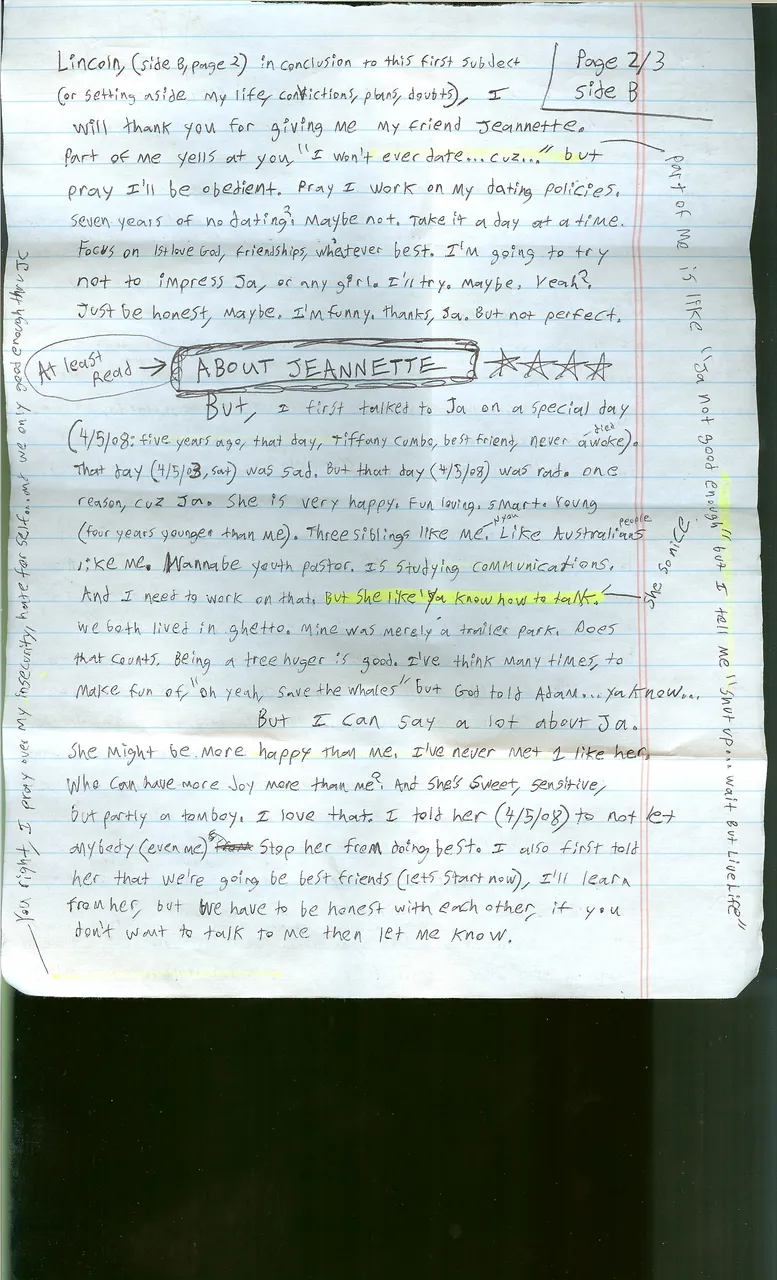 Page 2/3
side B
Lincoln, (side B, page 2) in conclusion to this first subject
(or setting aside my life, convictions, plans, doubts), I
will thank you for giving me my friend Jeannette.
Part of me yells at you "I won't ever date... cuz..." but
pray I'll be obedient. Pray I work on my dating policies.
Seven years of no dating? Maybe not. Take it a day at a time.
Focus on 1st love God, friendships, whatever best. I'm going to try
not to impress Ja, or any girl. I'll try. Maybe. Yeah?
Just be honest, maybe. I'm funny. Thanks, Ja. But not perfect.
At least Read → ABOUT JEANNETTE
But, I first talked to Ja on a special day
(4/5/08: five years ago, that day, Tiffany Cumbo, best friend, never awoke). died
That day (4/5/03, sat) was sad. But that day (4/5/08) was rad. one
reason, cuz Ja. She is very happy. Fun loving. Smart. Young
(four years younger than me). Three siblings like me. Like Australians people
like me. Wannabe youth pastor. Is studying communications.
And I need to work on that. But she like "ya know how to talk."
she sonic
we both lived in ghetto. Mine was merely a trailer park. Does
that counts. Being a tree huger is good. I've think many times, to
make fun of, "oh yeah, save the whales" but God told Adam... ya know...
But I can say a lot about Ja.
She might be more happy than me. I've never met 1 like her.
Who can have more Joy more than me? And she's sweet, sensitive,
but partly a tomboy. I love that. I told her (4/5/08) to not let
anybody (even me) Stop her from doing best. I also first told
her that we're going be best friends (lets start now), I'll learn
from her, but we have to be honest with each other, if you
don't want to talk to me then let me know.
part of me is like "Ja not good enough" but I tell me "shut up... wait But Live Life"
You right, I pray over my insecurity, hate for self... but we only good enough thru JC